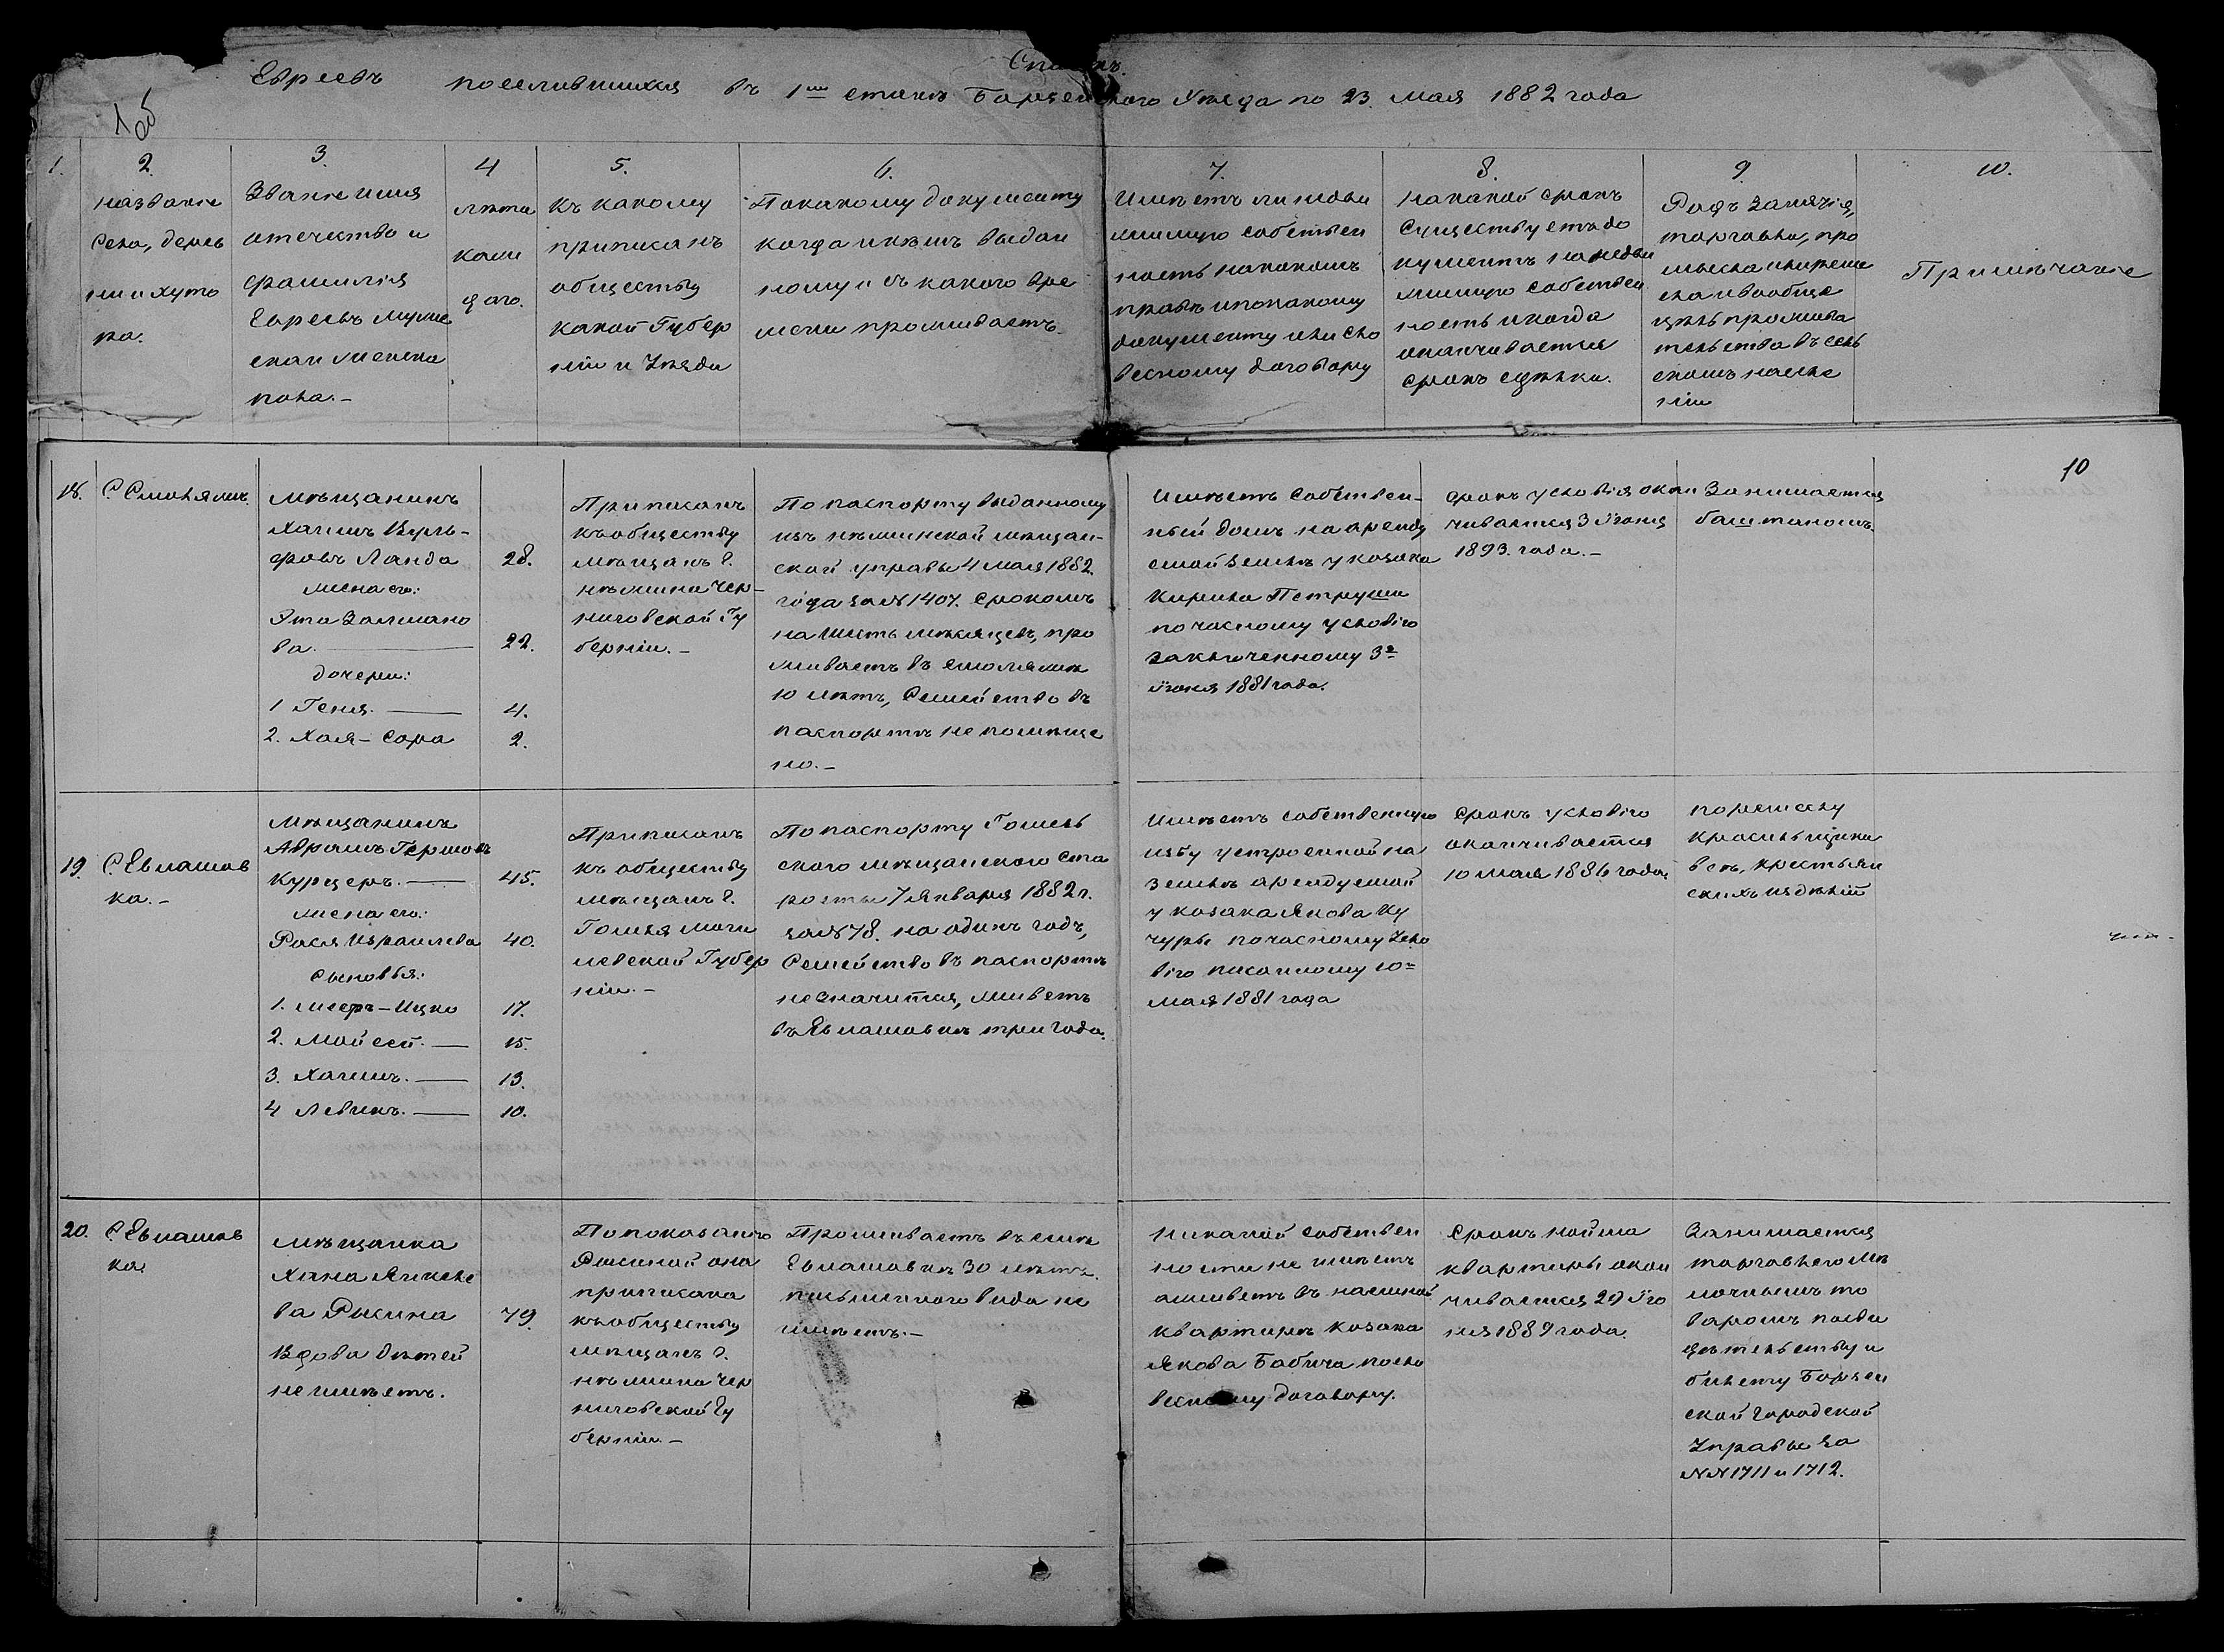 Списокъ
Евреевъ поселившихся въ 1мъ станѣ Борзенскаго Уѣзда по 23. мая 1882 года
1об
1.
2.
названіе
Села, дерев
ни и хуто
ра.
3.
Званіе имя
отечество и
фамилія
Евреевъ муже
скаи женска
пола.-
4
лѣта
каж
даго.
5.
Къ какому
приписанъ
обществу
какой Губер
ніи и Уѣзда
6.
По какому документу
когда и кѣмъ выдан
ному и съ какого вре
мени проживаетъ.
7.
Имѣетъ ли недви
жимую собствен
ность на какомъ
правѣ и по какому
документу или сло
весному договору
8.
На какой срокъ
существуетъ до
кументъ на недви
жимую собствен
ность и когда
оканчивается
срокъ сдѣлки.
9.
Родъ занятія,
торговли, про
мысла и ремес
ла и вообще
цѣль прожива
тельства въ сель
скомъ населе
ніи
10.
Примѣчаніе
10
18.
С. Смоляжъ.
Мѣщанинъ
Хаимъ Вуль-
фовъ Ланда
жена его:
Эта Залмано
ва.
дочери:
1 Геня.
2. Хая-Сора
28.
22.
4.
2.
Приписанъ
къ обществу
мѣщанъ г.
нѣжина Чер-
ниговской Гу
берніи.-
По паспорту выданному
изъ нѣжинской мѣщан-
ской управы 4 мая 1882.
года за № 1407. срокомъ
на шесть мѣсяцевъ, про
живаетъ въ смоляжѣ
10 лѣтъ, Семейство въ
паспортѣ не помѣще
но.-
Имѣетъ собствен-
ный домъ на аренду
емой землѣ у козака
Кирила Петруши
по часному условію
заключенному 3го
іюня 1881 года.
срокъ условія окан
чивается 3 Іюня
1893. года.-
Занимается
баштаномъ.
19.
С. Евлашов
ка.-
Мѣщанинъ
Абрамъ Гершовъ
Курцеръ.
жена его:
Рася Израилева
Сыновья:
1. Мееръ-Ицко
2. Мойсей.
3. Хаимъ.
4 Левикъ.
45.
40.
17.
15.
13.
10.
Приписанъ
къ обществу
мѣщанъ г.
Гомеля моги
левской Губер
ніи.-
По паспорту Гомель
ского мѣщанского ста
росты 7 Января 1882 г.
за № 78. на одинъ годъ,
Семейство въ паспортѣ
не значится, живетъ
въ Евлашовкѣ три года.
Имѣетъ собственную
избу устроенной на
землѣ арендуемой
у козака Якова Ку
чуры по часному усло
вію писанному 10го
мая 1881 года
Срокъ условію
оканчивается
10 мая 1886 года.
по ремеслу
красильщика
вещ. крестьян
скихъ издѣлій
20.
С. Евлашов
ка.
мѣщанка
Хана Янкеле
ва Рысина
Вдова дѣтей
не имѣетъ.
79.
По показанію
Рысиной она
приписана
къ обществу
мѣщанъ г.
нѣжина Чер
ниговской Гу
берніи.-
Проживаетъ въ селѣ
Евлашовкѣ 30 лѣтъ.
письменного вида не
имѣетъ.-
Никакой собствен
ности не имѣетъ
а живетъ въ наемной
квартирѣ козака
Якова Бабича по сло
весному договору.
Срокъ найма
квартиры окан
чивается 29 Ію
ня 1889 года.
Занимается
торговлею мѣ
лочнымъ то
варомъ по сви
дѣтельству и
билету Борзен
ской Городской
Управы за
№№ 1711 и 1712.